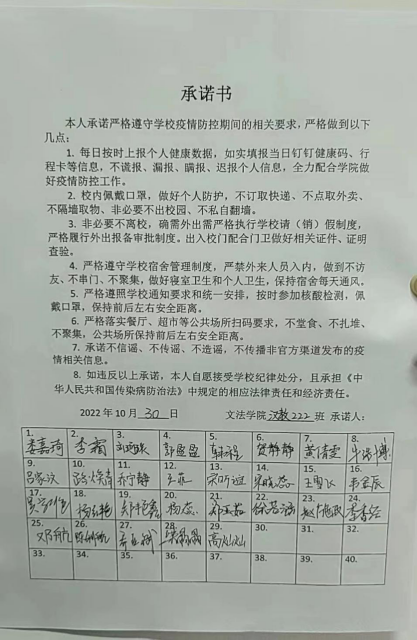 承诺书
本人承诺严格遵守学校疫情防控期间的相关要求，严格做到以下
几点：
1. 每日按时上报个人健康数据，如实填报当日钉钉健康码、行
程卡等信息，不谎报、漏报、瞒报、迟报个人信息，全力配合学院做
好疫情防控工作。
2. 校内佩戴口罩，做好个人防护，不订取快递、不点取外卖、
不隔墙取物、非必要不出校园、不私自翻墙。
3. 非必要不离校，确需外出需严格执行学校请（销）假制度，
严格履行外出报备审批制度。出入校门配合门卫做好相关证件、证明
查验。
4. 严格遵守学校宿舍管理制度，严禁外来人员入内，做到不访
友、不串门、不聚集，做好寝室卫生和个人卫生，保持宿舍每天通风。
5. 严格遵照学校通知要求和统一安排，按时参加核酸检测，佩
戴口罩，保持前后左右安全距离。
6. 严格落实餐厅、超市等公共场所扫码要求，不堂食、不扎堆、
不聚集，公共场所保持前后左右安全距离。
7. 承诺不信谣、不传谣、不造谣，不传播非官方渠道发布的疫
情相关信息。
8. 如违反以上承诺，本人自愿接受学校纪律处分，且承担《中
华人民共和国传染病防治法》中规定的相应法律责任和经济责任。
2022 年 10 月 30 日 文法学院 汉教222 班 承诺人：
1. 2. 李霜 3. 4. 5. 6. 贺静静 7. 黄倩雯 8.
9. 10. 11. 乔宁静 12. 13. 14. 15. 16.
17. 18. 19. 20. 杨蕊 21. 22. 23. 24.
25. 26. 27. 28. 29. 高灿灿 30. 31. 32.
33. 34. 35. 36. 37. 38. 39. 40.